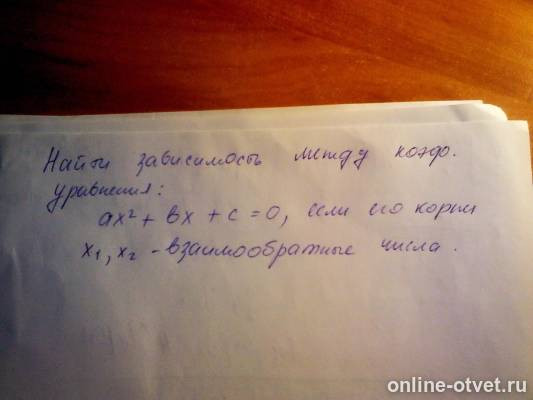 Найти зависимость между коэф.
уравнения:
ax² + bx + c = 0, если его корни
x₁, x₂ - взаимообратные числа.
online-otvet.ru